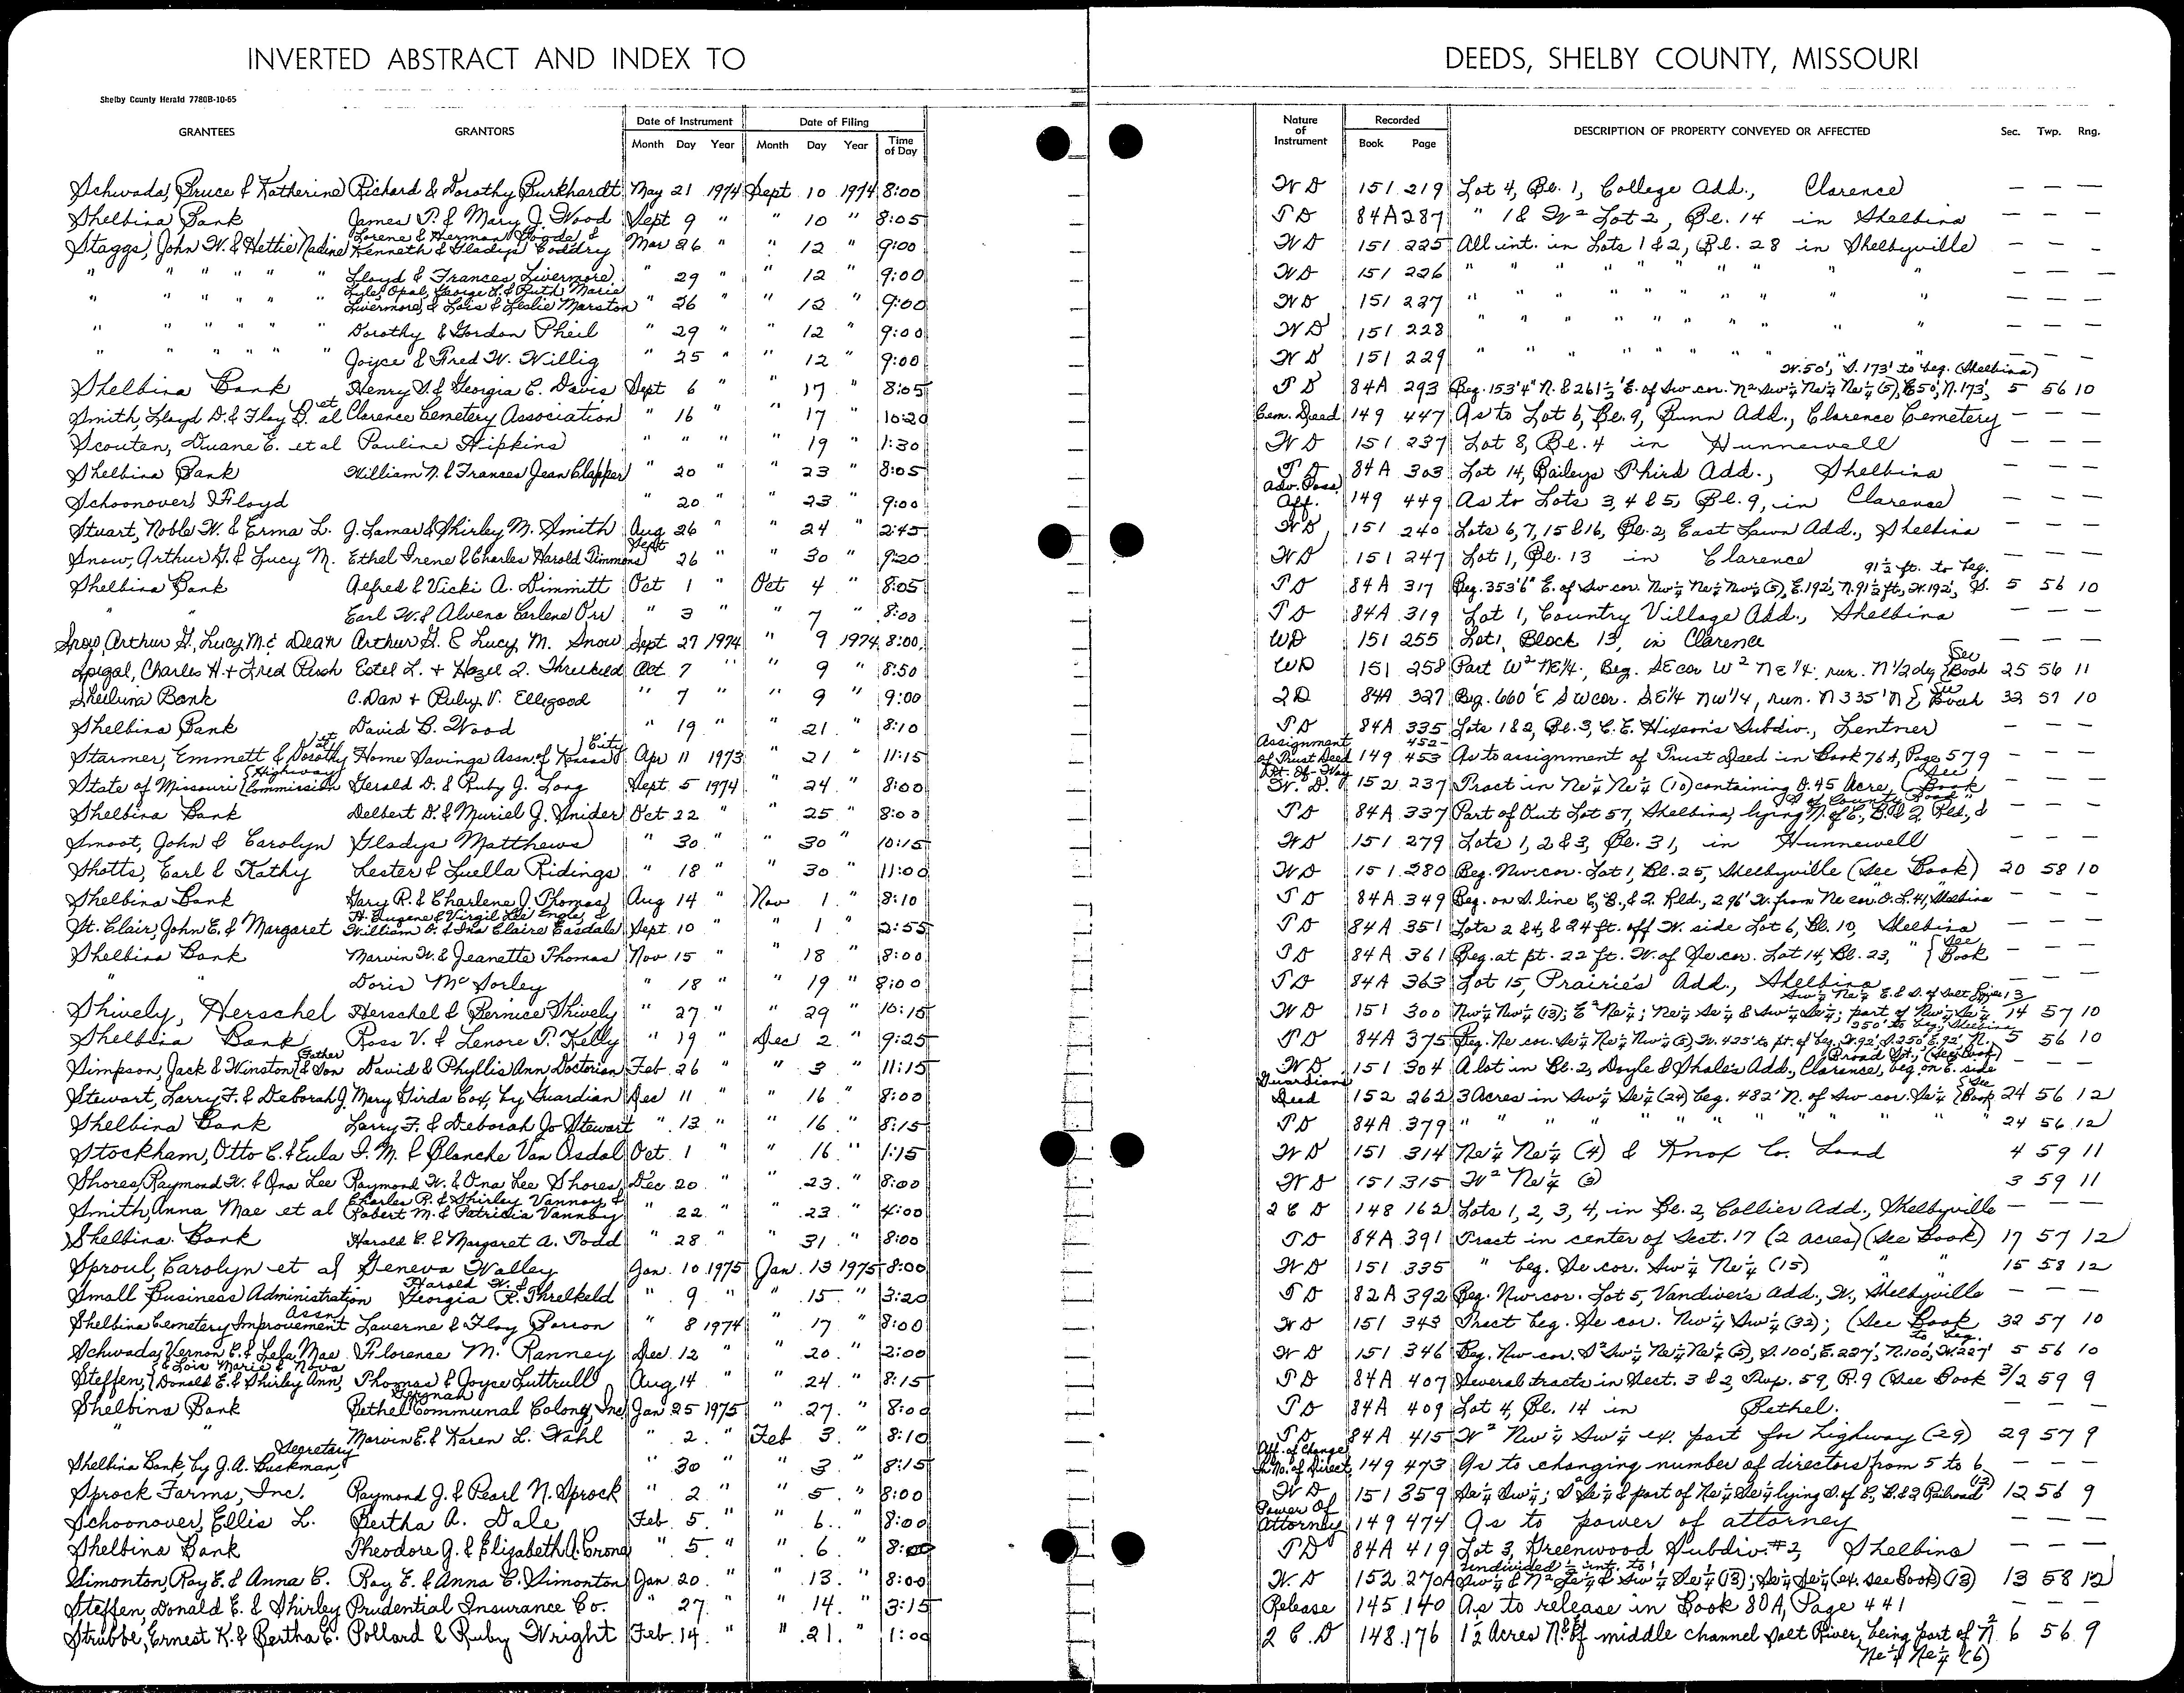 INVERTED ABSTRACT AND INDEX TO DEEDS, SHELBY COUNTY, MISSOURI
Shelby County Herald 7780B-10-65
GRANTEES GRANTORS Date of Instrument Date of Filing Nature of Instrument Recorded DESCRIPTION OF PROPERTY CONVEYED OR AFFECTED Sec. Twp. Rng.
Month Day Year Month Day Year Time of Day Book Page
Schwada, Bruce & Katherine Richard & Dorothy Burkhardt May 21 1974 Sept 10 1974 8:00 WD 151 219 Lot 4, Bl. 1, College Add., Clarence — — —
Shelbina Bank James P. & Mary J. Wood Sept 9 " " 10 " 8:05 TD 84A 287 " 1 & W² Lot 2, Bl. 14 in Shelbina — — —
Staggs, John W. & Hettie Nadine Lorene & Herman Gooda & Kenneth & Gladys Coddry Mar 26 " " 12 " 9:00 WD 151 225 All int. in Lots 1 & 2, Bl. 28 in Shelbyville — — —
" " " " " Lloyd & Frances Livermore " 29 " " 12 " 9:00 WD 151 226 " " " " " " " " " " — — —
" " " " " Lyle, Opal, George L. & Ruth Marie Livermore, & Lois & Leslie Marston " 26 " " 12 " 9:00 WD 151 227 " " " " " " " " " " — — —
" " " " " Dorothy & Gordon Pheil " 29 " " 12 " 9:00 WD 151 228 " " " " " " " " " " — — —
" " " " " Joyce & Fred W. Willig " 25 " " 12 " 9:00 WD 151 229 " " " " " " " " " " — — —
Shelbina Bank Henry V. & Georgia C. Davis Sept 6 " " 17 " 8:05 TD 84A 293 Beg. 153'4" N. & 261½' E. of Sw cor. N² Sw¼ Ne¼ Ne¼ (5), E 50', N. 173', W. 50', S. 173' to beg. (Shelbina) 5 56 10
Smith, Lloyd D. & Floy B. et al Clarence Cemetery Association " 16 " " 17 " 10:20 Cem. Deed 149 447 As to Lot 6, Bl. 9, Bunn Add., Clarence Cemetery — — —
Scouten, Duane E. et al Pauline Hipkins " " " " 19 " 1:30 WD 151 237 Lot 8, Bl. 4 in Hunnewell — — —
Shelbina Bank William N. & Frances Jean Clapper " 20 " " 23 " 8:05 TD 84A 303 Lot 14, Baileys Third Add., Shelbina — — —
Schoonover, Floyd " 20 " " 23 " 9:00 Adv. Poss. Aff. 149 449 As to Lots 3, 4 & 5, Bl. 9, in Clarence — — —
Stuart, Noble W. & Erma L. J. Lamar & Shirley M. Smith Aug 26 " " 24 " 2:45 WD 151 240 Lots 6, 7, 15 & 16, Bl. 2, East Lawn Add., Shelbina — — —
Snow, Arthur G. & Lucy M. Ethel Irene & Charles Harold Timmons Sept 26 " " 30 " 9:20 WD 151 247 Lot 1, Bl. 13 in Clarence — — —
Shelbina Bank Alfred & Vicki A. Dimmitt Oct 1 " Oct 4 " 8:05 TD 84A 317 Beg. 353'6" E. of Sw cor. Nw¼ Ne¼ Nw¼ (5), E. 192', N. 91½ ft., W. 192', S. 91½ ft. to beg. 5 56 10
" " Earl W. & Alvena Carlene Orr " 3 " " 7 " 8:00 TD 84A 319 Lot 1, Country Village Add., Shelbina — — —
Snow, Arthur G., Lucy M. & Dean Arthur G. & Lucy M. Snow Sept 27 1974 " 9 1974 8:00 WD 151 255 Lot 1, Block 13, in Clarence — — —
Spigal, Charles H. + Fred Rush Estel L. + Hazel I. Threlkeld Oct. 7 " " 9 " 8:50 WD 151 258 Part W² NE¼, Beg. SE cor W² NE¼; run. N ½ deg {See Book 25 56 11
Shelbina Bank C. Dan + Ruby V. Elligood " 7 " " 9 " 9:00 TD 84A 327 Beg. 660' E SW cor. SE¼ NW¼, run. N 335' N {See Book 32 57 10
Shelbina Bank David B. Wood " 19 " " 21 " 8:10 TD 84A 335 Lots 1 & 2, Bl. 3, C. E. Hixson's Subdiv., Lentner — — —
Starmer, Emmett & Dorothy et al Home Savings Assn. of Kansas City Apr 11 1973 " 21 " 11:15 Assignment of Trust Deed 149 452-453 As to assignment of Trust Deed in Book 76A, Page 579
State of Missouri {Highway Commission Gerald D. & Ruby J. Long Sept. 5 1974 " 24 " 8:00 Rt.-of-Way W.D. 152 237 Tract in Ne¼ Ne¼ (10) containing 0.45 Acre (See Book — — —
Shelbina Bank Delbert D. & Muriel J. Snider Oct 22 " " 25 " 8:00 TD 84A 337 Part of Out Lot 57, Shelbina, lying N. of C., B. & Q. Rld., & — — —
Smoot, John & Carolyn Gladys Matthews " 30 " " 30 " 10:15 WD 151 279 Lots 1, 2 & 3, Bl. 31, in Hunnewell — — —
Shotts, Earl & Kathy Lester & Luella Ridings " 18 " " 30 " 11:00 WD 151 280 Beg. Nw cor. Lot 1, Bl. 25, Shelbyville (See Book) 20 58 10
Shelbina Bank Gary R. & Charlene J. Thomas Aug 14 " Nov 1 " 8:10 TD 84A 349 Beg. on S. line C., B., & Q. Rld., 296' W. from Ne cor. O. L. 41, Shelbina — — —
St. Clair, John E. & Margaret H. Eugene & Virgil Lee Engle, & William O. & Ina Claire Easdale Sept. 10 " " 1 " 2:55 TD 84A 351 Lots 2 & 4, & 24 ft. off W. side Lot 6, Bl. 10, Shelbina — — —
Shelbina Bank Marvin W. & Jeanette Thomas Nov 15 " " 18 " 8:00 TD 84A 361 Beg. at pt. 22 ft. W. of Se cor. Lot 14, Bl. 23, " {See Book — — —
" " Doris McSorley " 18 " " 19 " 8:00 TD 84A 363 Lot 15, Prairie's Add., Shelbina — — —
Shively, Herschel Herschel & Bernice Shively " 27 " " 29 " 10:15 WD 151 300 Nw¼ Nw¼ (13); E² Ne¼; Ne¼ Se¼ & Sw¼ Se¼; part of Nw¼ Se¼ Sw¼ Ne¼ E. & S. of Salt River 13/14 57 10
Shelbina Bank Ross V. & Lenore P. Kelly " 19 " Dec 2 " 9:25 TD 84A 375 Beg. Ne cor. Se¼ Ne¼ Nw¼ (5), W. 425' to pt. of beg., W. 92', S. 250', E. 92', N. 250' to beg., Shelbina 5 56 10
Simpson, Jack & Winston {Father & Son David & Phyllis Ann Doctorian Feb. 26 " " 3 " 11:15 WD 151 304 A lot in Bl. 2, Doyle & Shale's Add., Clarence, beg. on E. side Broad St., (See Book) — — —
Stewart, Larry F. & Deborah J. Mary Girda Cox, by Guardian Dec 11 " " 16 " 8:00 Guardians Deed 152 262 3 Acres in Sw¼ Se¼ (24) beg. 482' N. of Sw cor. Se¼ {See Book 24 56 12
Shelbina Bank Larry F. & Deborah Jo Stewart " 13 " " 16 " 8:15 TD 84A 379 " " " " " " " " " 24 56 12
Stockham, Otto C. & Eula I. M. & Blanche Van Osdol Oct. 1 " " 16 " 1:15 WD 151 314 Ne¼ Ne¼ (4) & Knox Co. Land 4 59 11
Shores, Raymond W. & Ona Lee Raymond W. & Ona Lee Shores Dec 20 " " 23 " 8:00 WD 151 315 W² Ne¼ (3) 3 59 11
Smith, Anna Mae et al Charles R. & Shirley Vannoy, & Robert M. & Patricia Vannoy " 22 " " 23 " 4:00 2 C D 148 162 Lots 1, 2, 3, 4, in Bl. 2, Collier Add., Shelbyville — — —
Shelbina Bank Harold C. & Margaret A. Todd " 28 " " 31 " 8:00 TD 84A 391 Tract in center of Sect. 17 (2 acres) (See Book) 17 57 12
Sproul, Carolyn et al Geneva Walley Jan. 10 1975 Jan. 13 1975 8:00 WD 151 335 " beg. Se cor. Sw¼ Ne¼ (15) " " 15 58 12
Small Business Administration Harold W. & Georgia R. Threlkeld " 9 " " 15 " 3:20 TD 82A 392 Beg. Nw cor. Lot 5, Vandiver's Add., W., Shelbyville — — —
Shelbina Cemetery Improvement Assn. Laverne & Floy Parson " 8 1974 " 17 " 8:00 WD 151 343 Tract beg. Se cor. Nw¼ Sw¼ (32); (See Book 32 57 10
Schwada, Vernon C. & Lela Mae Florence M. Ranney Dec. 12 " " 20 " 2:00 WD 151 346 Beg. Nw cor. S² Sw¼ Ne¼ Ne¼ (5), S. 100', E. 227', N. 100', W. 227' to beg. 5 56 10
Steffen, {& Lois Marie & Nova Donald E. & Shirley Ann, Thomas & Joyce Luttrull Aug 14 " " 24 " 8:15 TD 84A 407 Several tracts in Sect. 3 & 2, Twp. 59, R. 9 (See Book 3/2 59 9
Shelbina Bank Bethel German Communal Colony, Inc Jan 25 1975 " 27 " 8:00 TD 84A 409 Lot 4, Bl. 14 in Bethel. — — —
" " Marvin E. & Karen L. Wahl " 2 " Feb 3 " 8:10 TD 84A 415 W² Nw¼ Sw¼ ex. part for highway (29) 29 57 9
Shelbina Bank, by J. A. Buckman, Secretary " 30 " " 3 " 8:15 Aff. of Change in No. of Direct. 149 473 As to changing number of directors from 5 to 6 — — —
Sprock Farms, Inc. Raymond J. & Pearl N. Sprock " 2 " " 5 " 8:00 WD 151 359 Se¼ Sw¼; S² Se¼ & part of Ne¼ Se¼ lying S. of C., B. & Q Railroad (12) 12 56 9
Schoonover, Ellis L. Bertha A. Dale Feb. 5 " " 6 " 8:00 Power Of Attorney 149 474 As to power of attorney — — —
Shelbina Bank Theodore J. & Elizabeth A. Crone " 5 " " 6 " 8:00 TD 84A 419 Lot 3, Greenwood Subdiv. #2, Shelbina — — —
Simonton, Roy E. & Anna C. Roy E. & Anna C. Simonton Jan. 20 " " 13 " 8:00 W.D 152 270A undivided ½ int. to: Sw¼ & N² Se¼ & Sw¼ Se¼ (13); Se¼ Se¼ (ex. see Book) (13) 13 58 12
Steffen, Donald E. & Shirley Prudential Insurance Co. " 27 " " 14 " 3:15 Release 145 140 As to release in Book 80A, Page 441 — — —
Strubbe, Ernest K. & Bertha E. Pollard & Ruby Wright Feb. 14 " " 21 " 1:00 2 C. D 148 176 1½ Acres N. of middle channel Salt River, being part of N² Ne¼ Ne¼ (6) 6 56 9